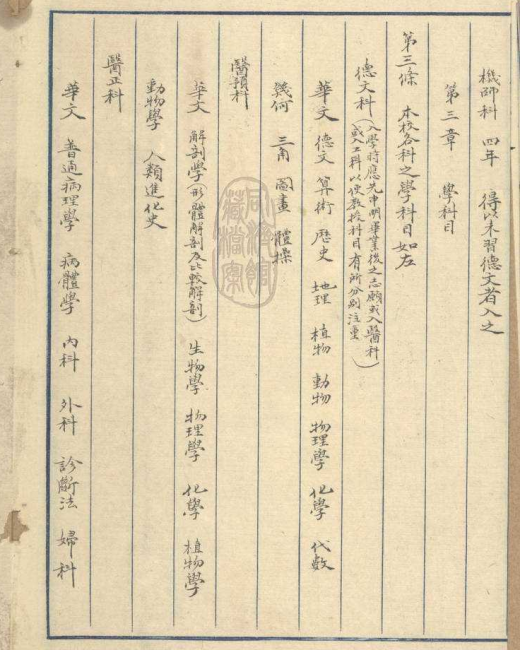 機師科　四年　得以未習德文者入之
第三章　學科目
第三條　本校各科之學科目如左
德文科（入學時應先申明畢業後之志願或入醫科
或入工科以便教授科目有所分別注重）
華文　德文　算術　歷史　地理　植物　動物　物理學　化學　代數
幾何　三角　圖畫　體操
醫預科
華文　解剖學（形體解剖及比較解剖）　生物學　物理學　化學　植物學
動物學　人類進化史
醫正科
華文　普通病理學　病體學　內科　外科　診斷法　婦科